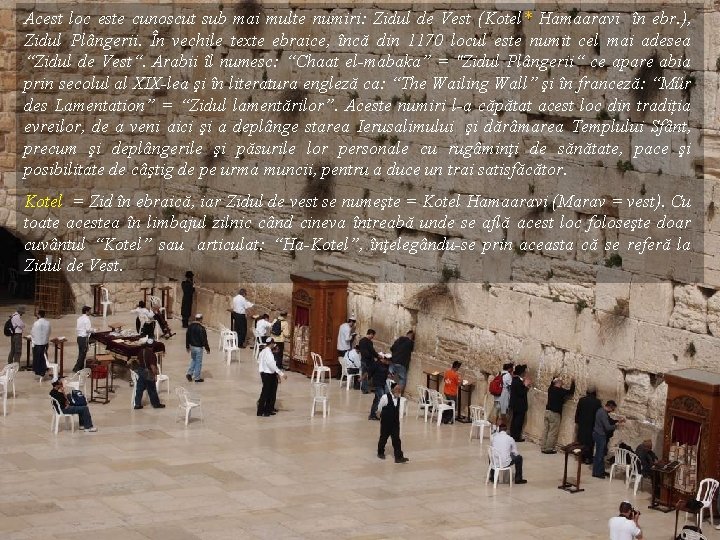 Acest loc este cunoscut sub mai multe numiri: Zidul de Vest (Kotel* Hamaaravi în ebr.),
Zidul Plângerii. În vechile texte ebraice, încă din 1170 locul este numit cel mai adesea
“Zidul de Vest“. Arabii îl numesc: “Chaat el-mabaka” = "Zidul Plângerii“ ce apare abia
prin secolul al XIX-lea şi în literatura engleză ca: “The Wailing Wall” şi în franceză: “Mür
des Lamentation” = “Zidul lamentărilor”. Aceste numiri l-a căpătat acest loc din tradiţia
evreilor, de a veni aici şi a deplânge starea Ierusalimului şi dărâmarea Templului Sfânt,
precum şi deplângerile şi păsurile lor personale cu rugăminţi de sănătate, pace şi
posibilitate de câştig de pe urma muncii, pentru a duce un trai satisfăcător.
Kotel = Zid în ebraică, iar Zidul de vest se numeşte = Kotel Hamaaravi (Marav = vest). Cu
toate acestea în limbajul zilnic când cineva întreabă unde se află acest loc foloseşte doar
cuvântul “Kotel” sau articulat: “Ha-Kotel”, înţelegându-se prin aceasta că se referă la
Zidul de Vest.